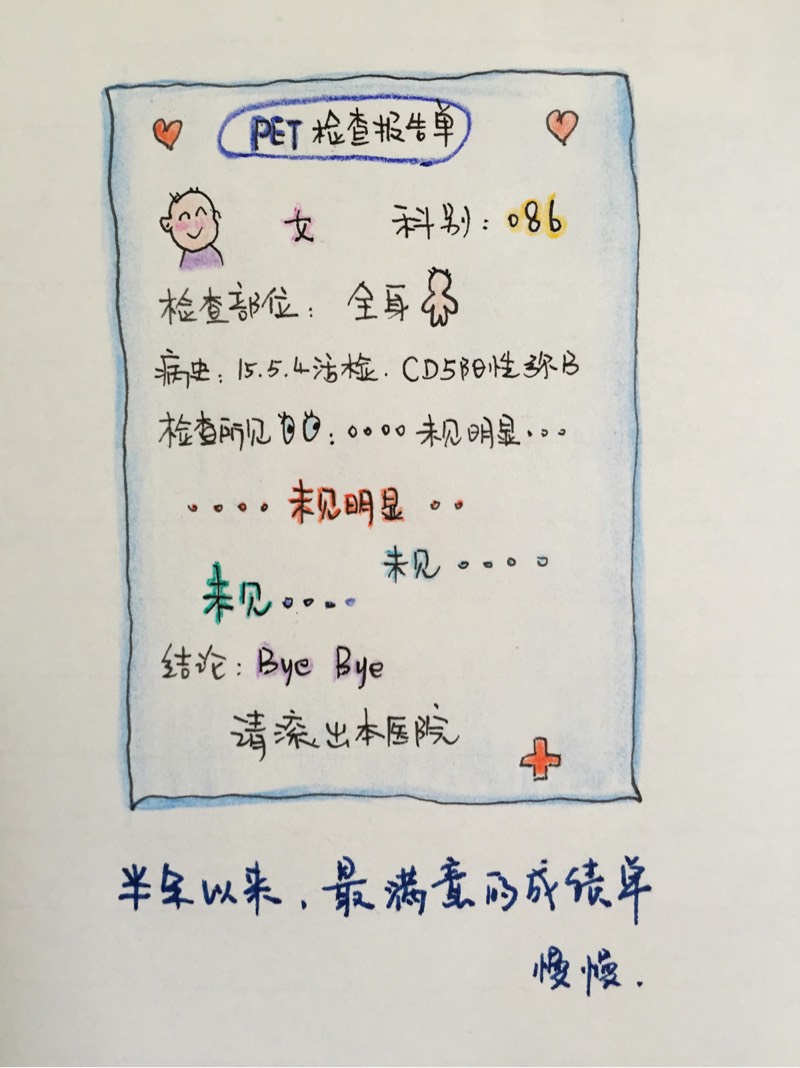 PET检查报告单
女 科别：086
检查部位：全身
病史：15.5.4活检. CD5阳性弥B
检查所见：。。。。未见明显。。。
。。。。未见明显。。
未见。。。。
未见。。。。
结论：Bye Bye
请滚出本医院
半年以来，最满意的成绩单
慢慢.